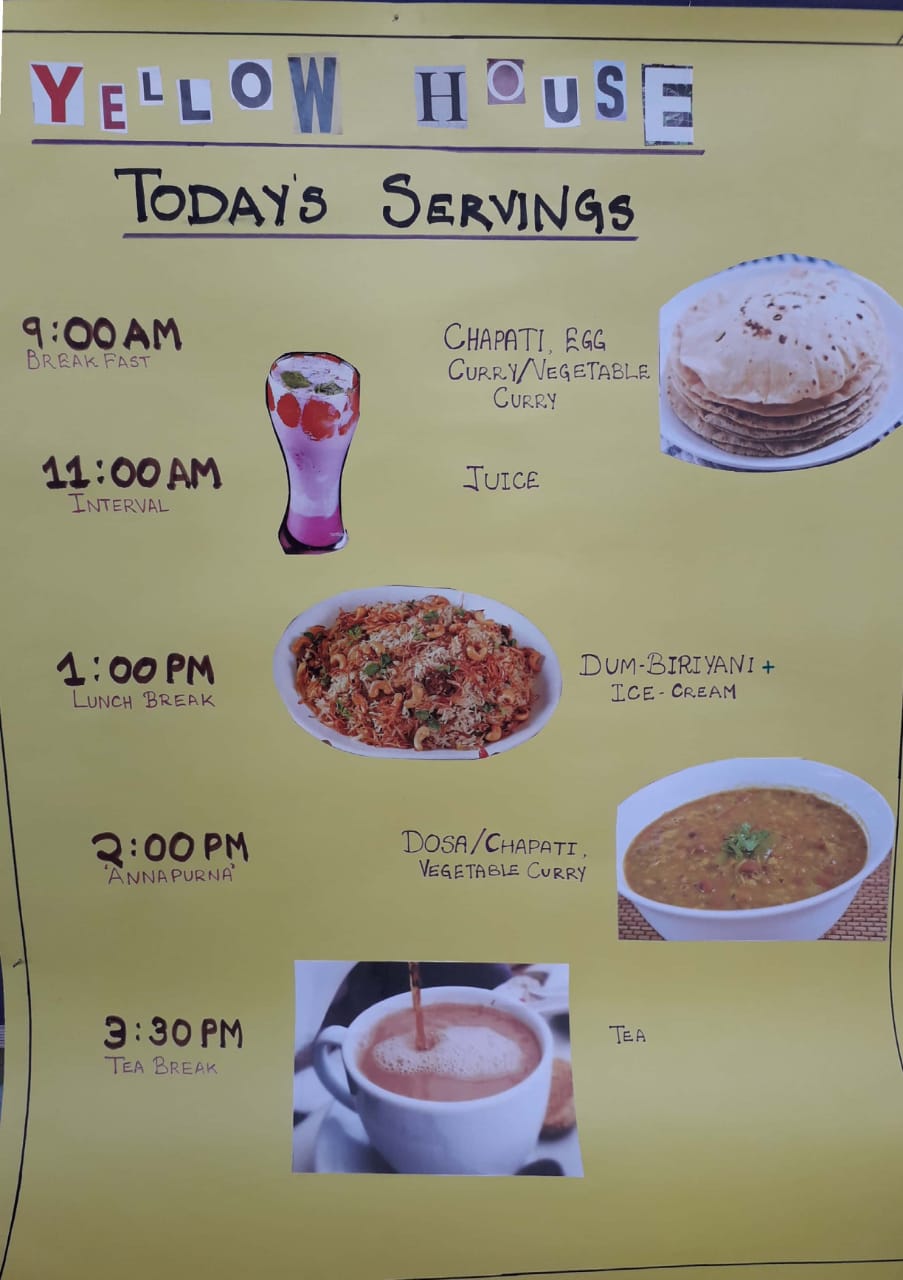 YELLOW HOUSE
TODAY'S SERVINGS
9:00 AM
BREAK FAST
CHAPATI, EGG
CURRY/VEGETABLE
CURRY
11:00 AM
INTERVAL
JUICE
1:00 PM
LUNCH BREAK
DUM-BIRIYANI +
ICE-CREAM
2:00 PM
'ANNAPURNA'
DOSA/CHAPATI,
VEGETABLE CURRY
3:30 PM
TEA BREAK
TEA